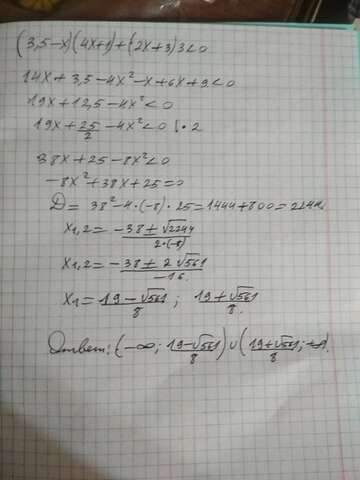 (3,5-x)(4x+1)+(2x+3)3<0
14x+3,5-4x²-x+6x+9<0
19x+12,5-4x²<0
19x+25/2-4x²<0 |·2
38x+25-8x²<0
-8x²+38x+25=0
D=38²-4·(-8)·25=1444+800=2244
x₁,₂=(-38±√2244)/(2·(-8))
x₁,₂=(-38±2√561)/(-16)
x₁=(19-√561)/8; (19+√561)/8
Ответ: (-∞; (19-√561)/8)∪((19+√561)/8; +∞)